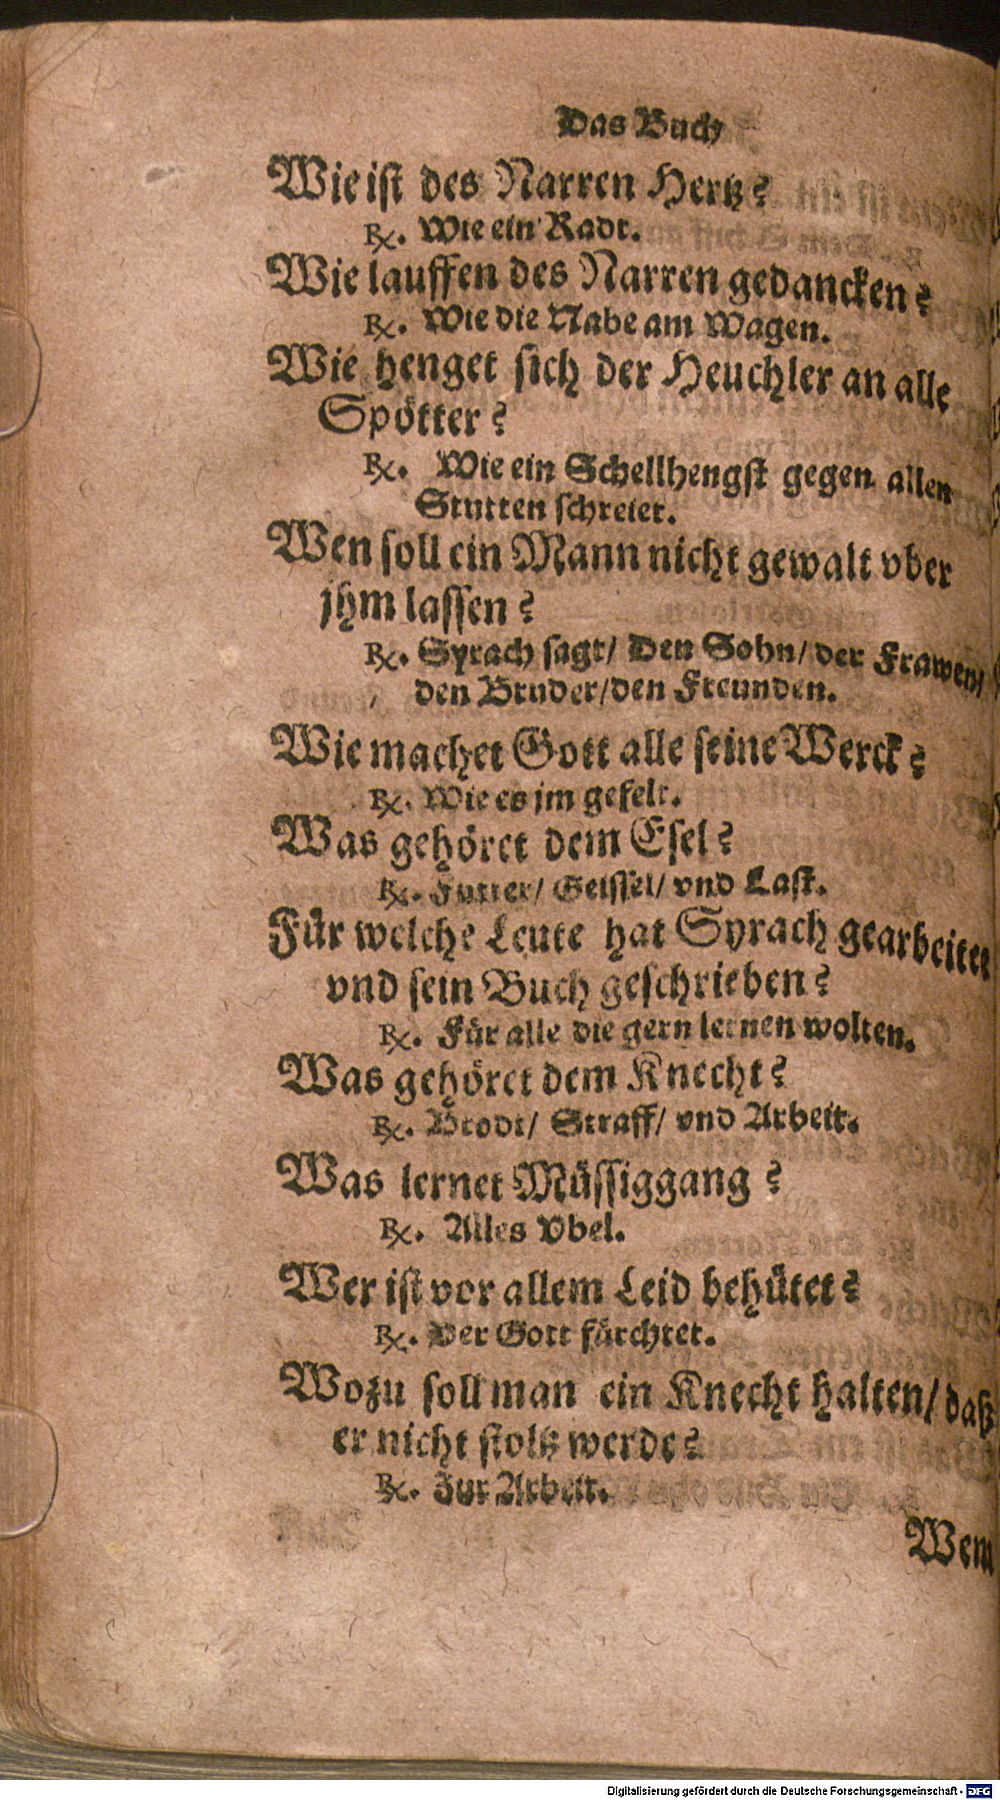 Das Buch
Wie ist des Narren Hertz?
℞. Wie ein Radt.
Wie lauffen des Narren gedancken?
℞. Wie die Nabe am Wagen.
Wie henget sich der Heuchler an alle
Spötter?
℞. Wie ein Schellhengst gegen allen
Stutten schreiet.
Wen soll ein Mann nicht gewalt vber
jhm lassen?
℞. Syrach sagt/ Den Sohn/ der Frawen/
den Bruder/den Freunden.
Wie machet Gott alle seine Werck?
℞. Wie es jm gefelt.
Was gehöret dem Esel?
℞. Futter/ Geissel/ vnd Last.
Für welche Leute hat Syrach gearbeitet
vnd sein Buch geschrieben?
℞. Für alle die gern lernen wolten.
Was gehöret dem Knecht?
℞. Brodt/ Straff/ vnd Arbeit.
Was lernet Müssiggang?
℞. Alles Vbel.
Wer ist vor allem Leid behütet?
℞. Der Gott fürchtet.
Wozu soll man ein Knecht halten/ daß
er nicht stoltz werde?
℞. Zur Arbeit.
Wem
Digitalisierung gefördert durch die Deutsche Forschungsgemeinschaft - DFG